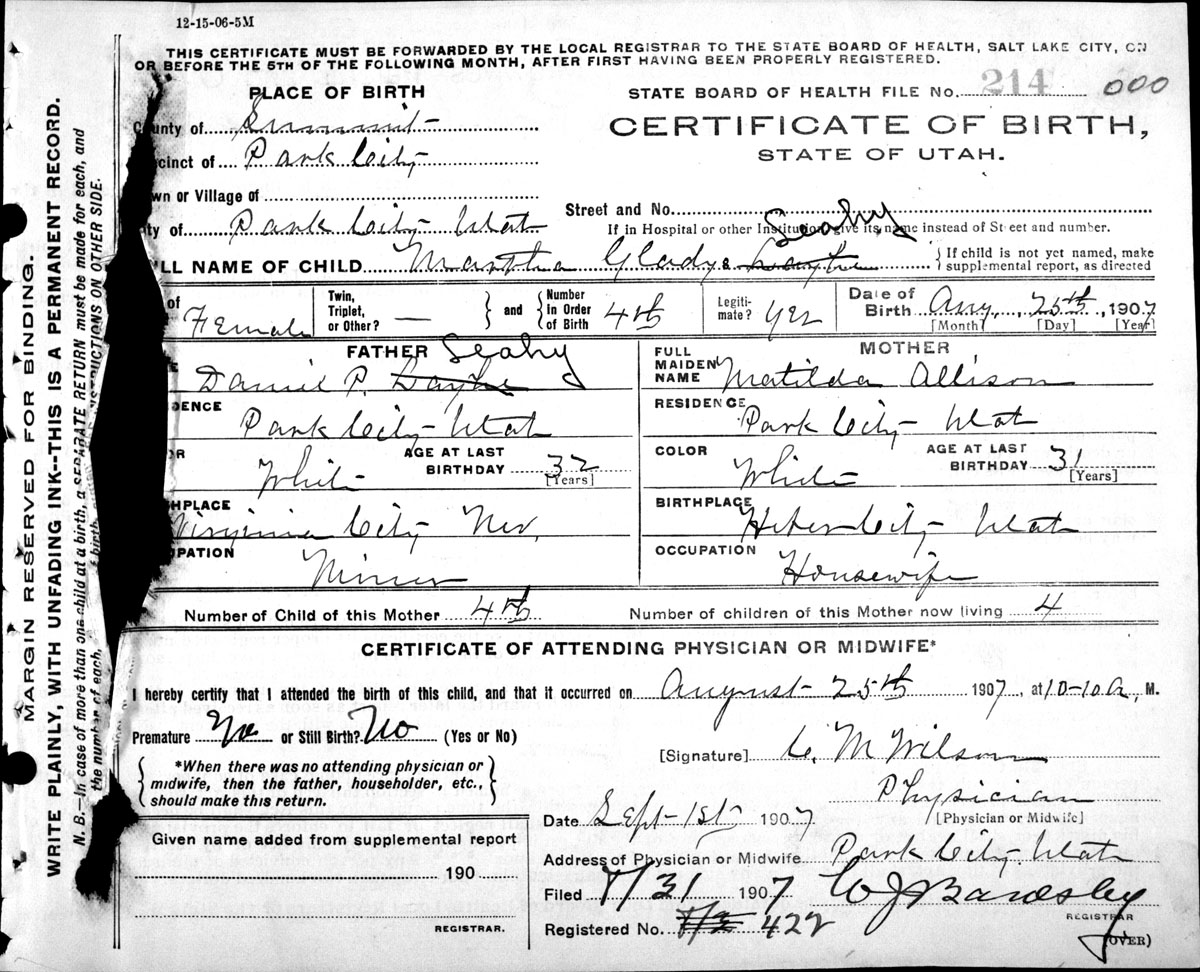 12-15-06-5M
THIS CERTIFICATE MUST BE FORWARDED BY THE LOCAL REGISTRAR TO THE STATE BOARD OF HEALTH, SALT LAKE CITY, ON
OR BEFORE THE 5TH OF THE FOLLOWING MONTH, AFTER FIRST HAVING BEEN PROPERLY REGISTERED.
PLACE OF BIRTH
STATE BOARD OF HEALTH FILE No. 214 000
County of Summit
CERTIFICATE OF BIRTH,
STATE OF UTAH.
cinct of Park City
wn or Village of
ty of Park City Utah
Street and No.
If in Hospital or other Institution, give its name instead of Street and number.
Seahy
LL NAME OF CHILD Martha Gladys
If child is not yet named, make
supplemental report, as directed
of Female
Twin, Triplet, or Other? —
and
Number In Order of Birth 4th
Legitimate? Yes
Date of Birth Aug. 25th, 1907
[Month] [Day] [Year]
FATHER
Seahy
Daniel P.
MOTHER
FULL MAIDEN NAME Matilda Allison
DENCE Park City Utah
RESIDENCE Park City Utah
R White
AGE AT LAST BIRTHDAY 32 [Years]
COLOR White
AGE AT LAST BIRTHDAY 31 [Years]
HPLACE Virginia City Nev.
BIRTHPLACE Heber City Utah
PATION Miner
OCCUPATION Housewife
Number of Child of this Mother 4th
Number of children of this Mother now living 4
CERTIFICATE OF ATTENDING PHYSICIAN OR MIDWIFE*
I hereby certify that I attended the birth of this child, and that it occurred on August 25th 1907, at 10-10 A. M.
Premature No or Still Birth? No (Yes or No)
*When there was no attending physician or
midwife, then the father, householder, etc.,
should make this return.
[Signature] C. M Wilson
Physician
[Physician or Midwife]
Date Sept 1st 1907
Address of Physician or Midwife Park City Utah
Filed 8/31 1907 W J Bardsley
REGISTRAR
Registered No. 422
(OVER)
Given name added from supplemental report
190
REGISTRAR.
MARGIN RESERVED FOR BINDING.
WRITE PLAINLY, WITH UNFADING INK--THIS IS A PERMANENT RECORD.
N. B.—In case of more than one child at a birth, a SEPARATE RETURN must be made for each, and
the number of each, birth, INSTRUCTIONS ON OTHER SIDE.